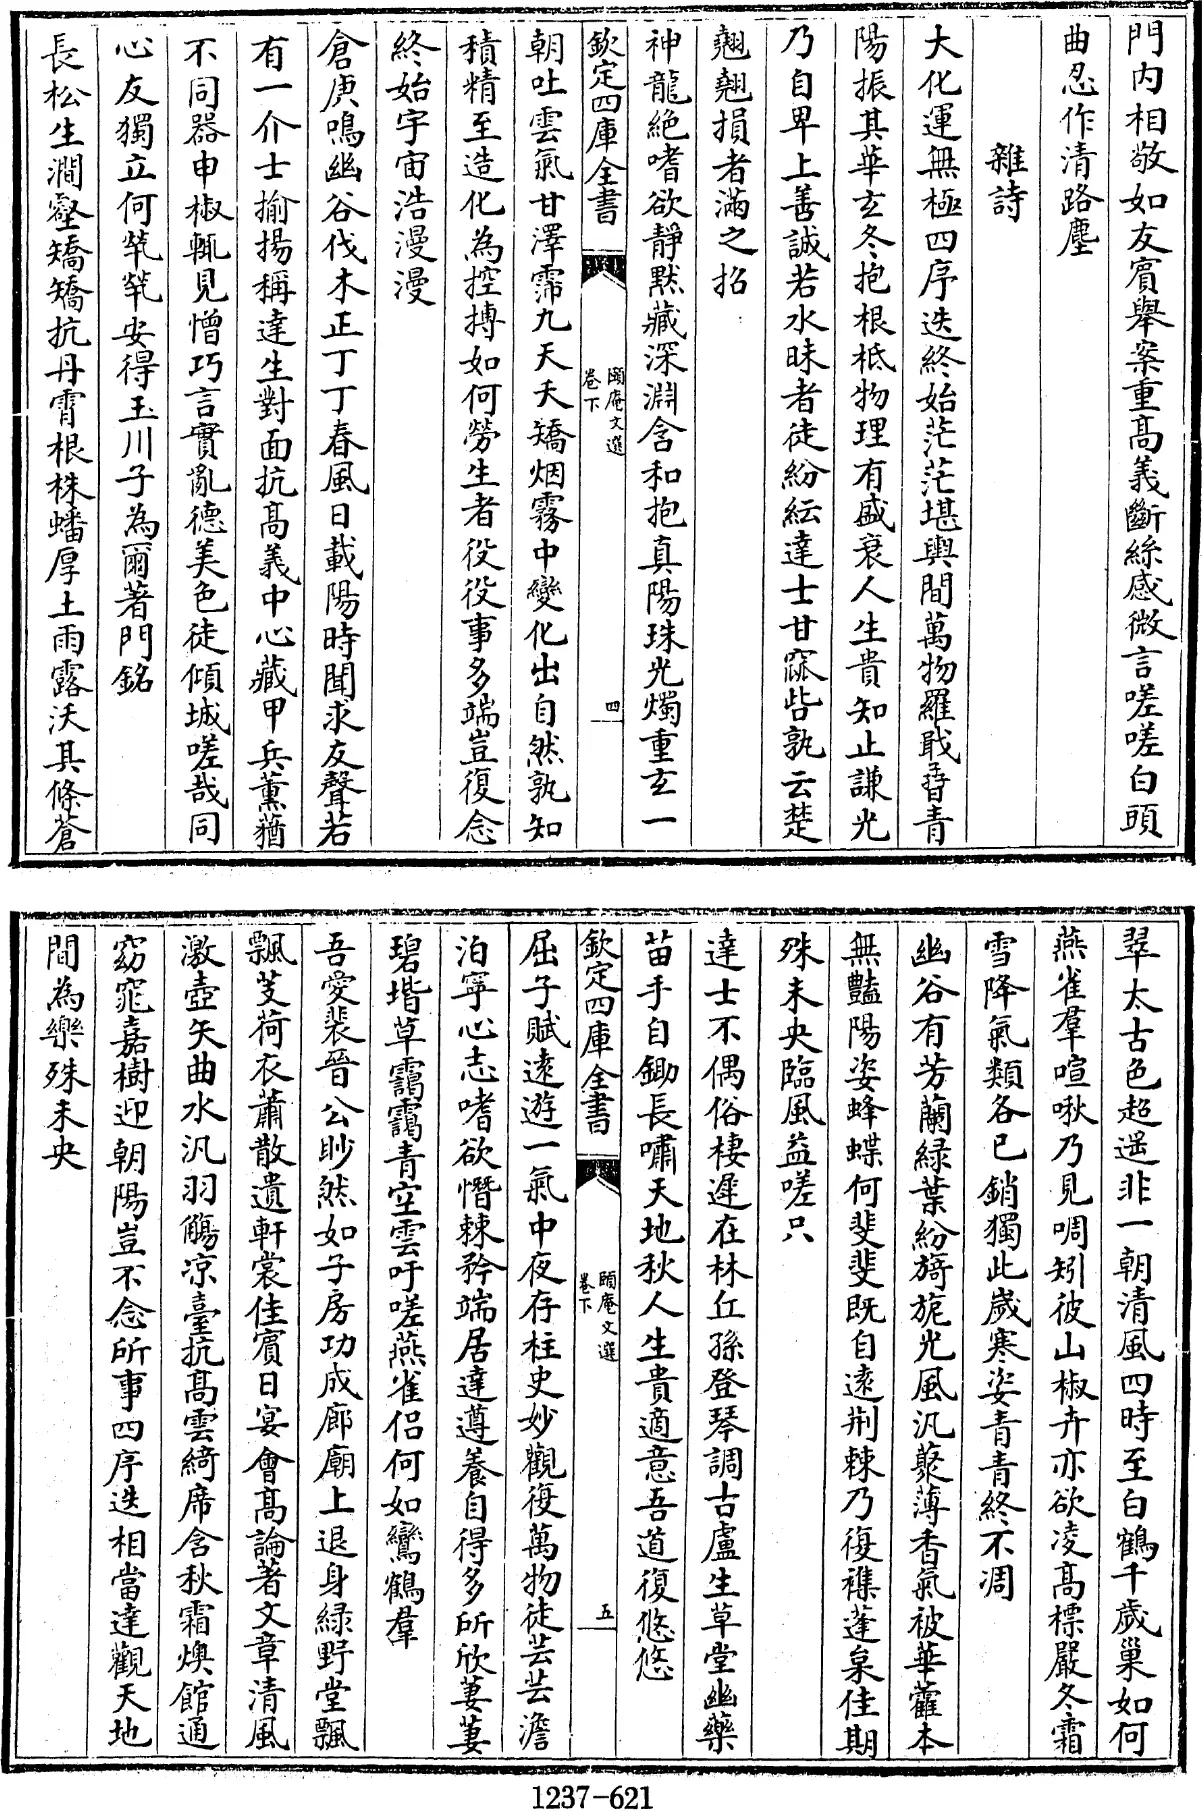 門内相敬如友賓舉案重髙義斷絲感微言嗟嗟白頭
曲忍作清路塵
雜詩
大化運無極四序迭終始茫茫堪輿間萬物羅戢孴青
陽振其華玄冬抱根柢物理有盛衰人生貴知止謙光
乃自卑上善誠若水昧者徒紛紜達士甘窳呰孰云楚
翹翹損者滿之招
神龍絶嗜欲靜黙藏深淵含和抱真陽珠光燭重玄一
欽定四庫全書
頤庵文選
卷下
四
朝吐雲氣甘澤霈九天夭矯烟霧中變化出自然孰知
積精至造化為控摶如何勞生者役役事多端豈復念
終始宇宙浩漫漫
倉庚鳴幽谷伐木正丁丁春風日載陽時聞求友聲若
有一介士揄揚稱達生對面抗髙義中心藏甲兵薰蕕
不同器申椒輒見憎巧言實亂德美色徒傾城嗟哉同
心友獨立何煢煢安得玉川子為爾著門銘
長松生澗壑矯矯抗丹霄根株蟠厚土雨露沃其條蒼
翠太古色超遥非一朝清風四時至白鶴千歲巢如何
燕雀羣喧啾乃見啁矧彼山椒卉亦欲凌髙標嚴冬霜
雪降氣類各已銷獨此歲寒姿青青終不凋
幽谷有芳蘭緑葉紛旖旎光風汎藂薄香氣被華藿本
無豔陽姿蜂蝶何斐斐既自逺荆棘乃復襍蓬枲佳期
殊未央臨風益嗟只
達士不偶俗棲遲在林丘孫登琴調古盧生草堂幽藥
苗手自鋤長嘯天地秋人生貴適意吾道復悠悠
欽定四庫全書
頤庵文選
卷下
五
屈子賦逺遊一氣中夜存柱史妙觀復萬物徒芸芸澹
泊寧心志嗜欲憯棘矜端居達遵養自得多所欣萋萋
碧堦草靄靄青空雲吁嗟燕雀侣何如鸞鶴羣
吾愛裴晉公眇然如子房功成廊廟上退身緑野堂飄
飄芰荷衣蕭散遺軒裳佳賓日宴會髙論著文章清風
激壺矢曲水汎羽觴凉臺抗髙雲綺席含秋霜燠館通
窈窕嘉樹迎朝陽豈不念所事四序迭相當達觀天地
間為樂殊未央
1237-621